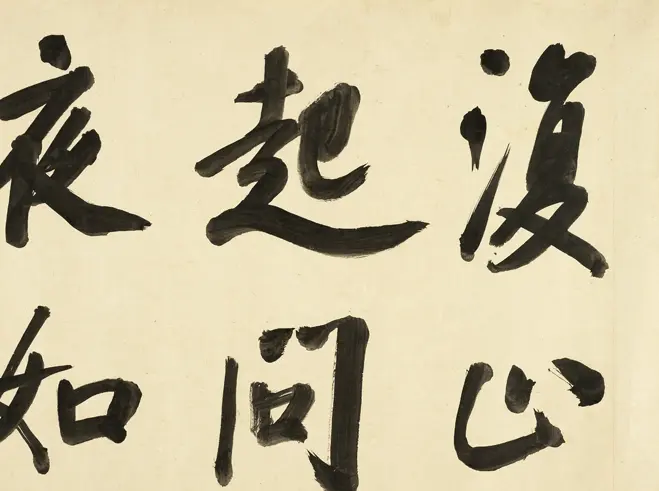 復
起問
夜如